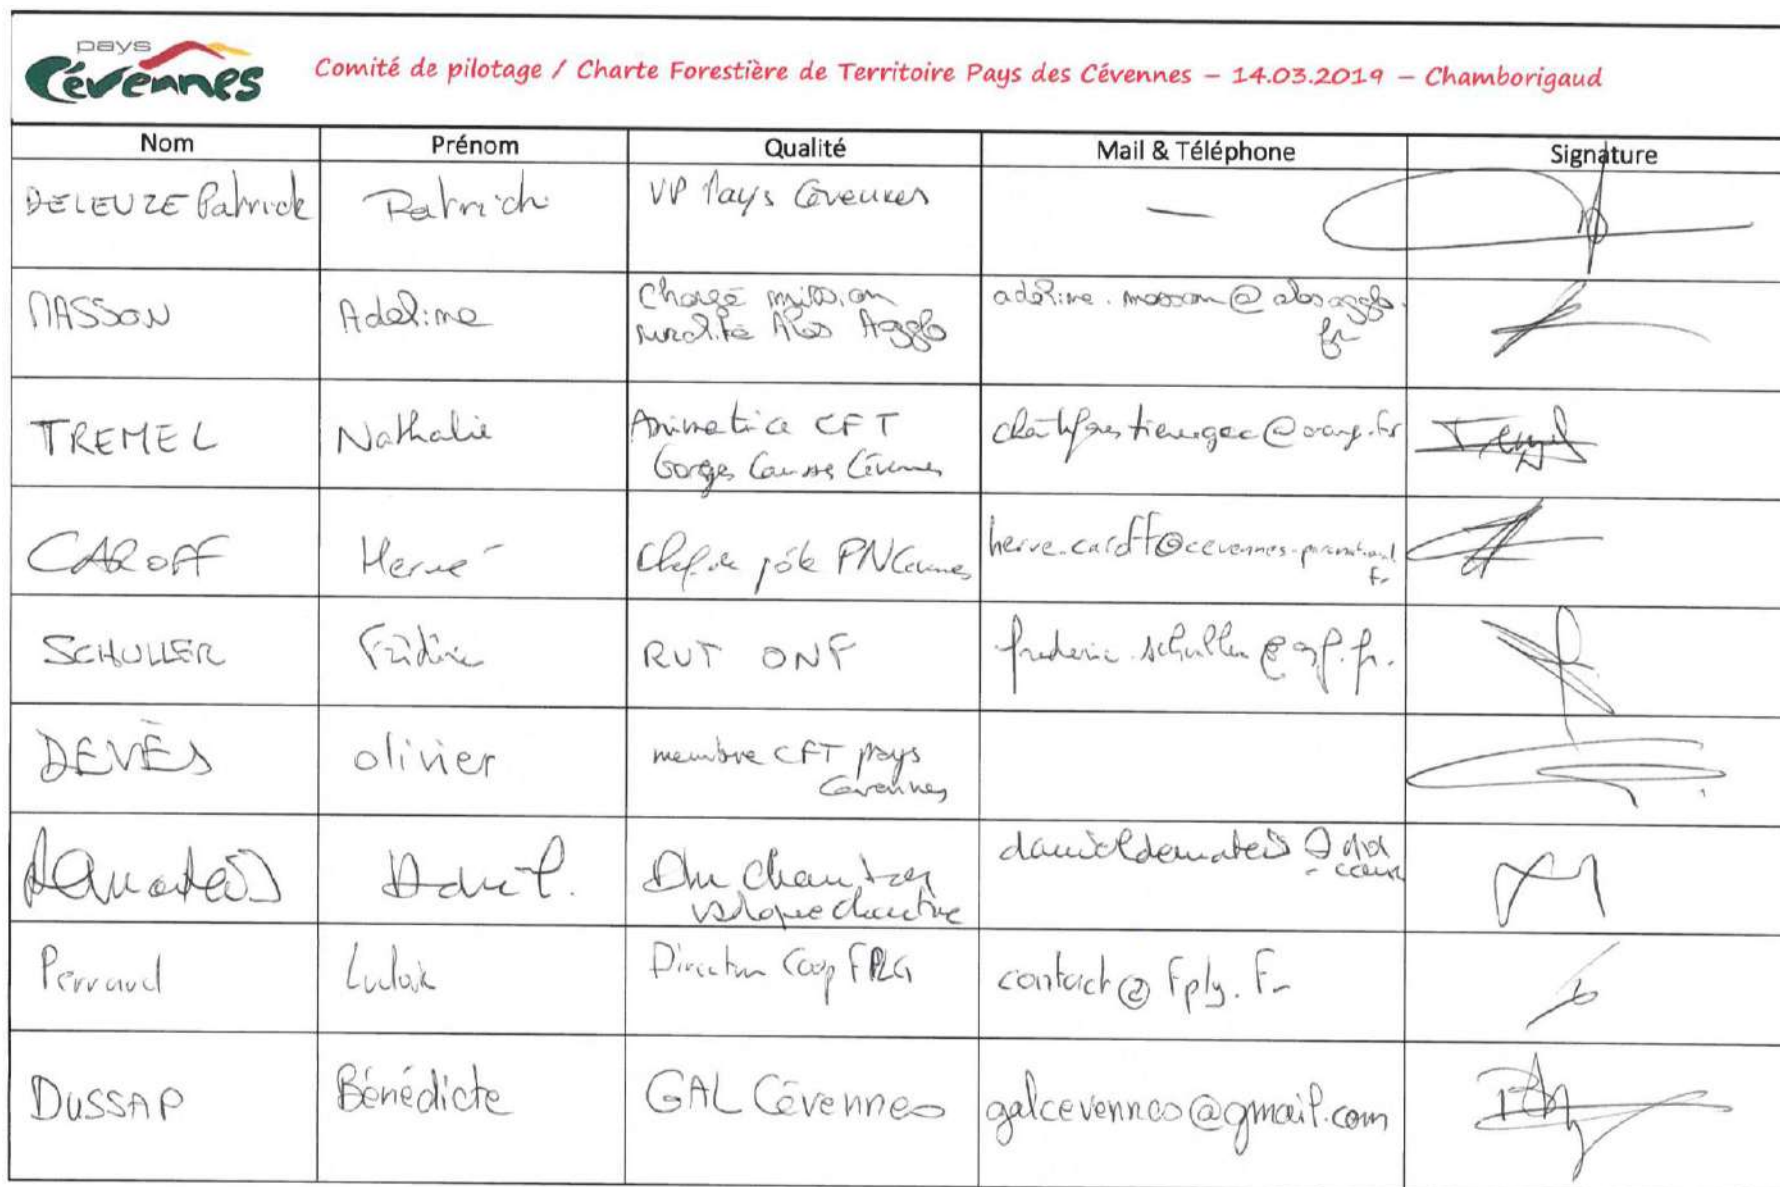 pays
Cévennes
Comité de pilotage / Charte Forestière de Territoire Pays des Cévennes – 14.03.2019 – Chamborigaud
Nom Prénom Qualité Mail & Téléphone Signature
DELEUZE Patrick Patrick VP Pays Cévennes —
MASSON Adeline Chargé mission
ruralité Alès Agglo
adeline.masson@alesagglo.
fr
TREMEL Nathalie Animatrice CFT
Gorges Causses Cévennes
CAROFF Hervé Chef de pôle PNCevennes
herve.caroff@cevennes-parcnational.
fr
SCHULLER Frédéric RUT ONF frederic.schuller@onf.fr.
DEVÈS olivier membre CFT pays
Cévennes
Demateis Daniel.
danieldemateis@
Perraud Ludovic Directeur Coop FPLG contact@Fplg.Fr
DUSSAP Bénédicte GAL Cévennes galcevennes@gmail.com